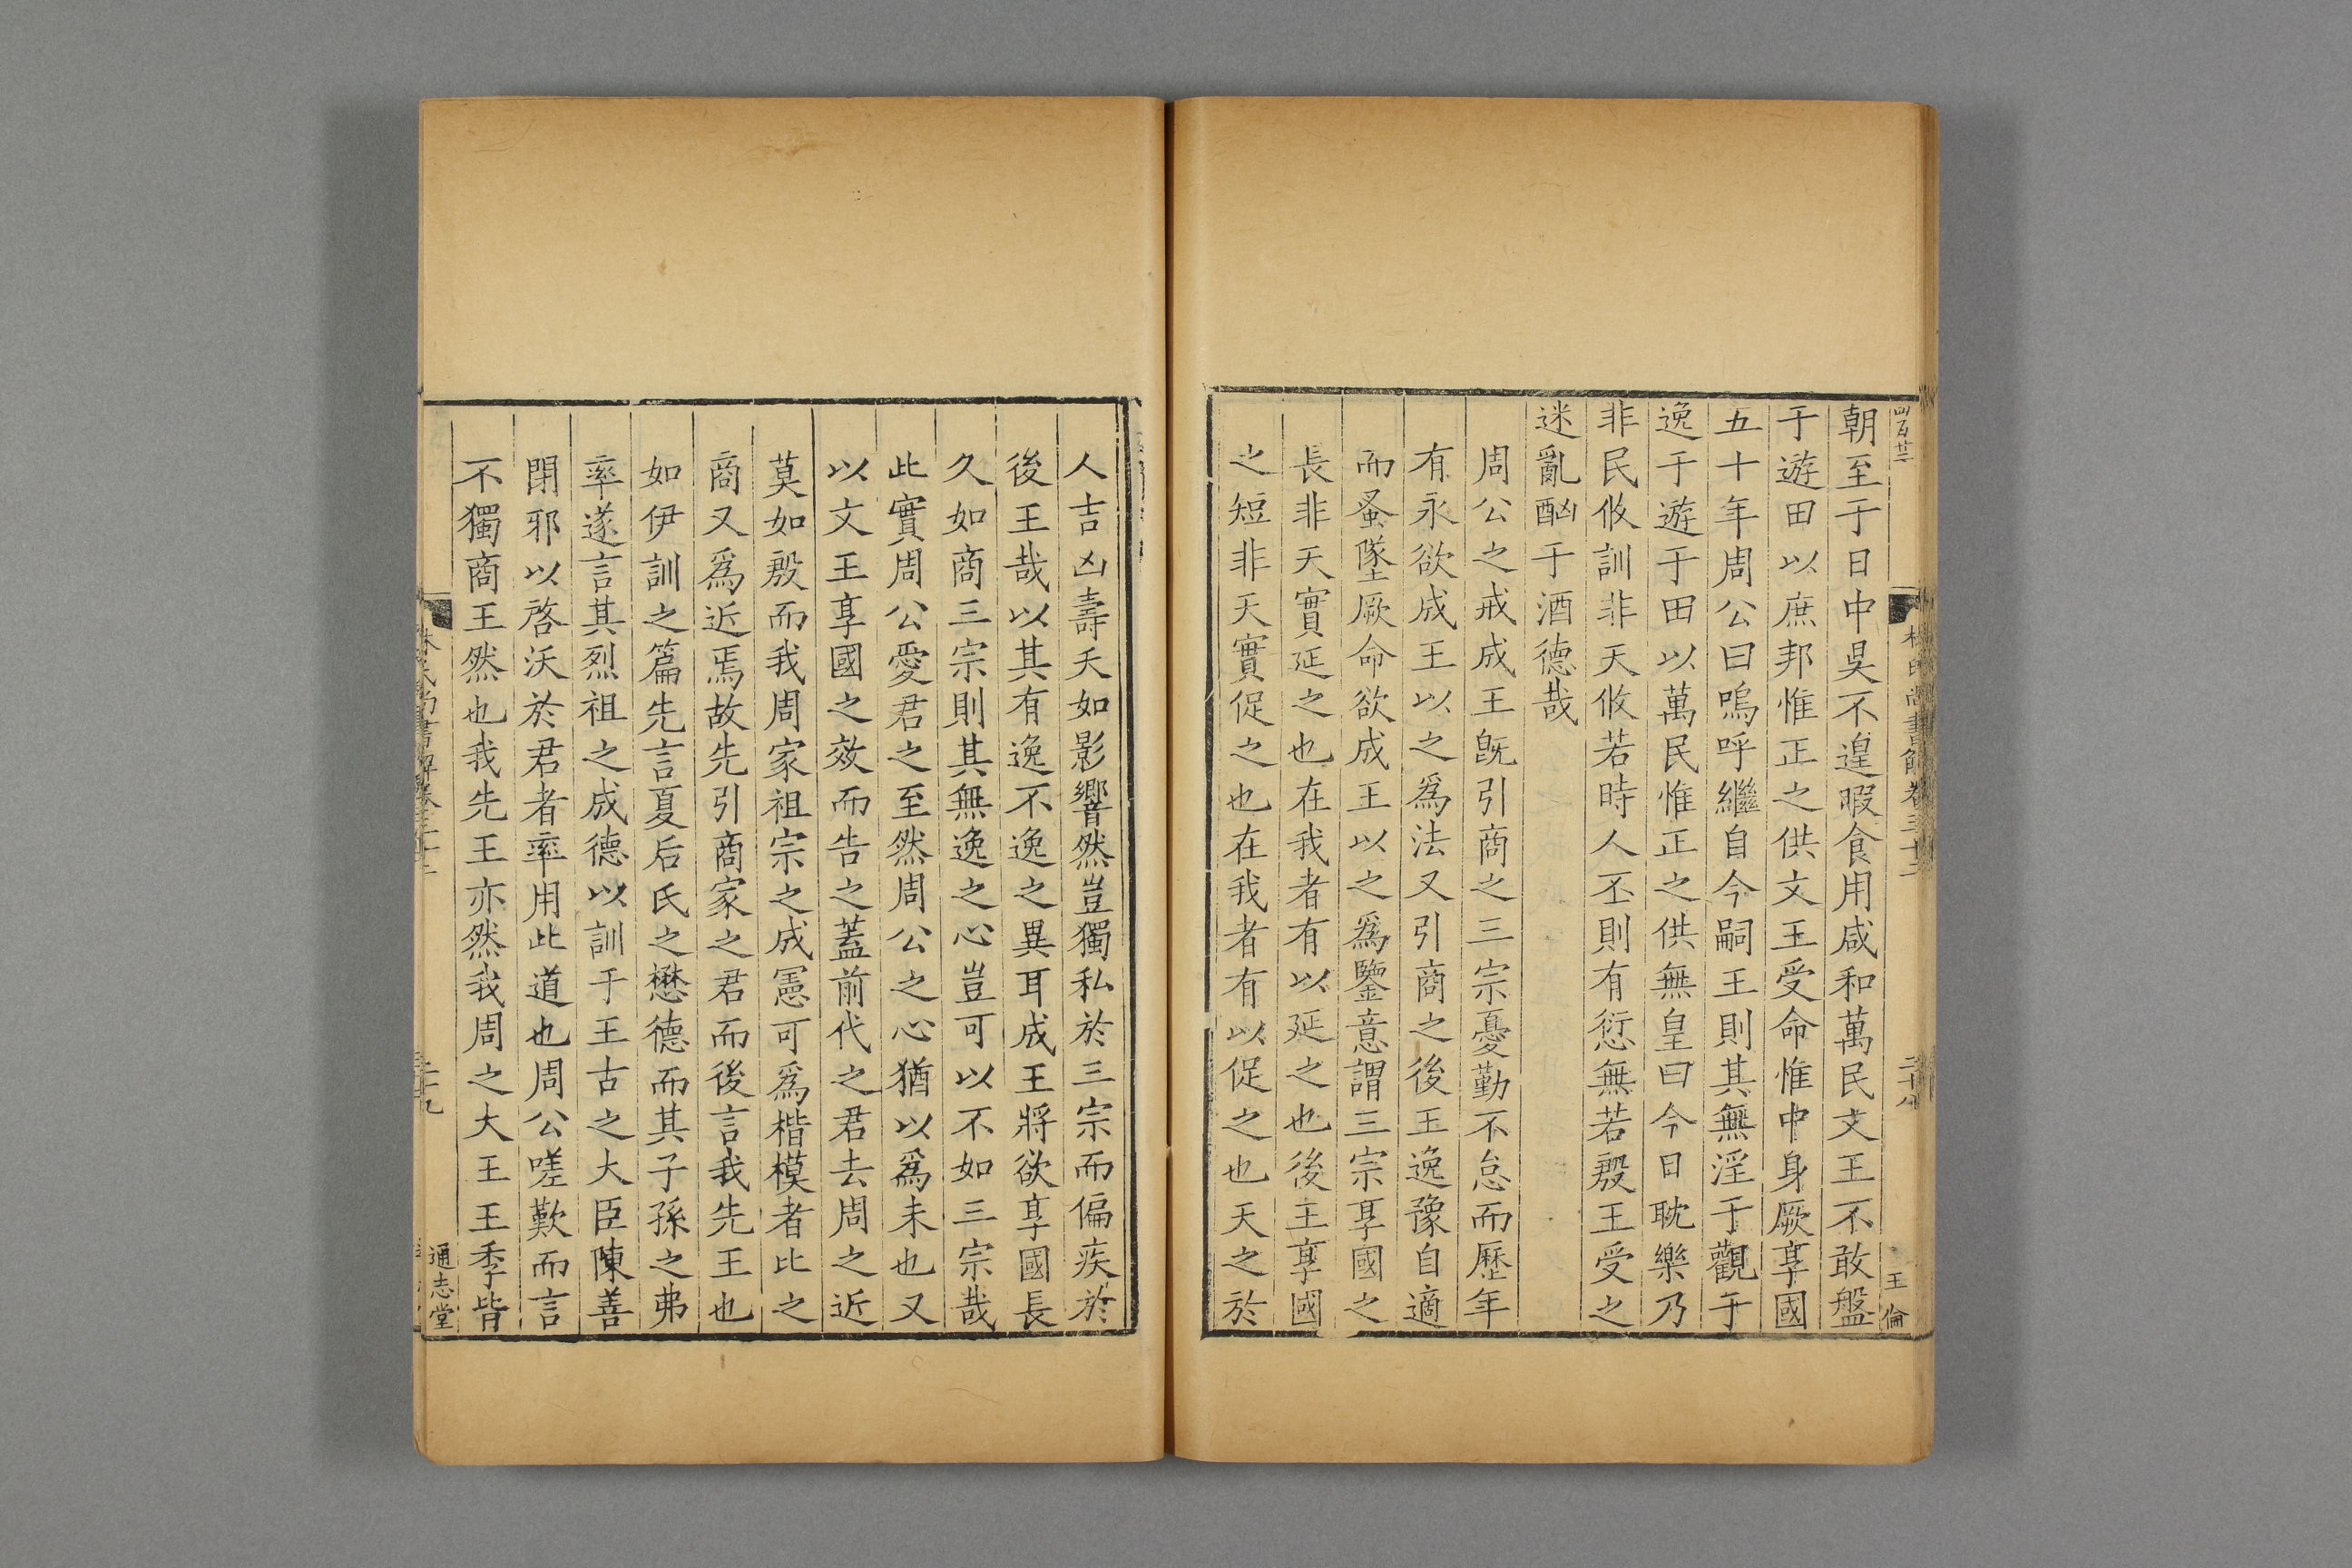 朝至于日中昃不遑暇食用咸和萬民文王不敢盤
于遊田以庶邦惟正之供文王受命惟中身厥享國
五十年周公曰嗚呼繼自今嗣王則其無淫于觀于
逸于遊于田以萬民惟正之供無皇曰今日耽樂乃
非民攸訓非天攸若時人丕則有愆無若殷王受之
迷亂酗于酒德哉
周公之戒成王旣引商之三宗憂勤不怠而歷年
有永欲成王以之爲法又引商之後王逸豫自適
而蚤墜厥命欲成王以之爲鑒意謂三宗享國之
長非天實延之也在我者有以延之也後王享國
之短非天實促之也在我者有以促之也天之於
王倫
人吉凶壽夭如影響然豈獨私於三宗而偏疾於
後王哉以其有逸不逸之異耳成王將欲享國長
久如商三宗則其無逸之心豈可以不如三宗哉
此實周公愛君之至然周公之心猶以爲未也又
以文王享國之效而告之蓋前代之君去周之近
莫如殷而我周家祖宗之成憲可爲楷模者比之
商又爲近焉故先引商家之君而後言我先王也
如伊訓之篇先言夏后氏之懋德而其子孫之弗
率遂言其烈祖之成德以訓于王古之大臣陳善
閉邪以啓沃於君者率用此道也周公嗟歎而言
不獨商王然也我先王亦然我周之大王王季皆
通志堂